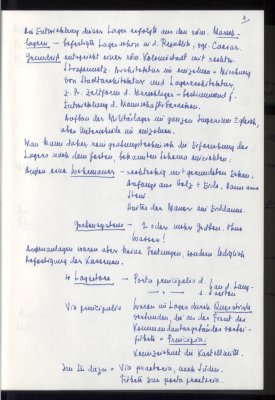 Die Entwicklung dieser Lager erfolgte aus den röm. Marsch-
lagern – befestigte Lager schon i. d. Republik, vgl. Caesar.
Grundriß entspricht einer röm. Koloniestadt mit rechtw.
Straßennetz. Architektur im einzelnen – Mischung
von Stadtarchitektur und Lagerarchitektur
z. B. Zeltform d. Marschlager – bestimmend f.
Entwicklung d. Mannschaftsbaracken.
Aufbau der Militärlager im ganzen Imperium ± gleich,
aber Unterschiede im einzelnen.
Man kann daher rein grabungstechnisch die Erforschung des
Lagers nach dem festen, bekannten Schema einrichten.
Außen eine Wehrmauer – rechteckig mit gerundeten Ecken.
Anfangs aus Holz + Erde, dann aus
Stein.
Hinter der Mauer ein Erddamm.
Grabensystem – 2 oder mehr Gräben ohne
Wasser!
Außenanlagen waren aber keine Festungen, sondern lediglich
Befestigung der Kasernen.
4 Lagertore → Porta principalis d.
s.
an d. Lang-
seiten
Via principalis
Waren im Lager durch Querstraße
verbunden, die an der Front des
Kommandantengebäudes vorbei-
führte = Principia
Kennzeichnet die Kastellmitte.
Im ⊥ dazu = Via praetoria, nach Süden.
Führte zur porta praetoria.